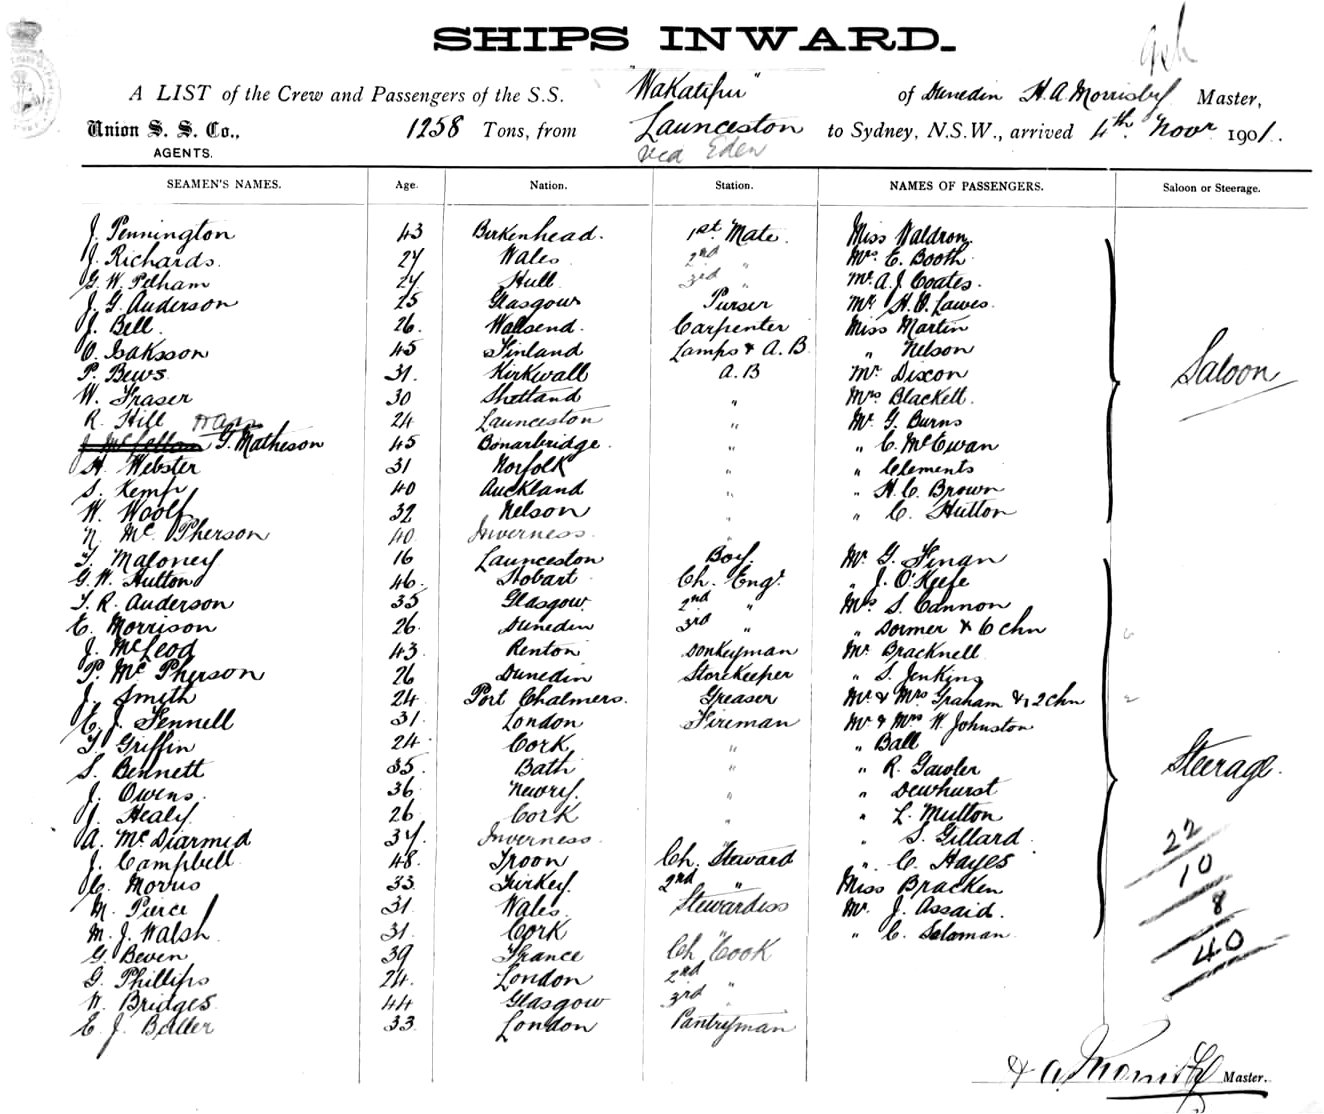 SHIPS INWARD.
A LIST of the Crew and Passengers of the S.S. "Wakatipu" of Dunedin H. A. Morrisby Master,
Union S. S. Co., 1258 Tons, from Launceston to Sydney, N.S.W., arrived 4th Novr 1901.
AGENTS. via Eden
SEAMEN'S NAMES. Age. Nation. Station. NAMES OF PASSENGERS. Saloon or Steerage.
J. Pennington 43 Birkenhead. 1st Mate. Miss Waldron
J. Richards. 27 Wales 2nd " Mrs E. Booth
G. W. Pelham 24 Hull 3rd " Mr A. J. Coates.
J. G. Anderson 25 Glasgow Purser Mr H. O. Lawes.
J. Bell. 26. Wallsend. Carpenter Miss Martin
O. Isaksson 45 Finland Lamps & A. B. " Nelson
P. Bews. 31. Kirkwall A. B Mr Dixon Saloon
W. Fraser 30 Shetland " Mrs Blackett.
R. Hill 24 Launceston " Mr G. Burns
G. Matheson 45 Bonarbridge. " " C. McEwan
H. Webster 31 Norfolk " " Clements
S. Kemp 40 Auckland " " H. C. Brown
W. Woolf 32 Nelson " C. Hutton
N. McPherson 40 Inverness. "
T. Maloney 16 Launceston Boy. Mr G. Finan
G. W. Hutton 46. Hobart Ch. Engr " J. O'Keefe
T. R. Anderson 35 Glasgow. 2nd " Mrs S. Cannon
E. Morrison 26. Dunedin 3rd " " Dormer & 6 chn 6
J. McLeod 43. Renton Donkeyman Mr Bracknell
P. McPherson 26 Dunedin Storekeeper " S. Jenkins
J. Smith 24 Port Chalmers. Greaser Mr & Mrs Graham & 2 chn 2
E. J. Fennell 31. London Fireman Mr & Mrs W. Johnston
T. Griffin 24 Cork " " Ball
S. Bennett 35. Bath " " R. Gawler Steerage.
J. Owens. 36. Newry. " " Dewhurst
J. Healy 26 Cork " " L. Mutton 22
A. McDiarmid 37. Inverness. " S. Gillard
J. Campbell 48. Troon Ch. Steward " C. Hayes 10
C. Morris 33. Turkey. 2nd " Miss Bracken
M. Pierce 31 Wales. Stewardess Mr. J. Assaid. 8
M. J. Walsh. 31. Cork " " C. Salaman 40
G. Beven 39 France Ch Cook
G. Phillips 24. London 2nd "
W. Bridges 44 Glasgow 3rd "
E. J. Butler 33. London Pantryman
H. A. Morrisby Master.